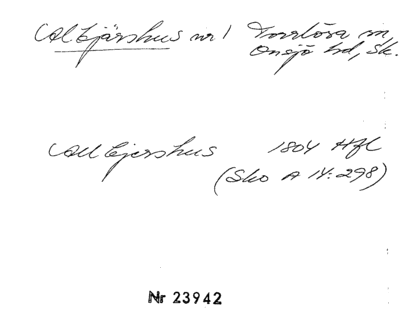 Allbjärshus nr 1 Torrlösa sn,
Onsjö hd, Sk.
Allbjershus 1804 Hfl
(Sko A 14:298)
Nr 23942